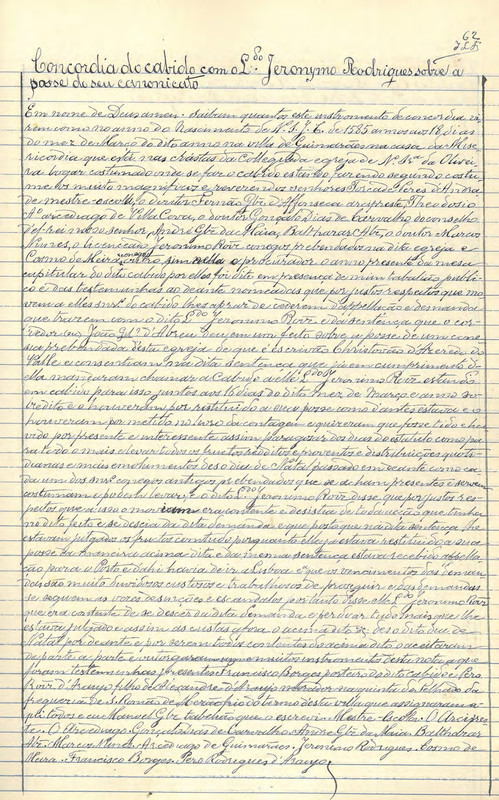 62
Concordia do cabido com o L.do Jeronymo Rodrigues sobre a
posse do seu canonicato
Em nome de Deus amen. Saibam quantos este instrumento de concordia vi-
rem como no anno do Nascimento de N. S. J. C. de 1585 annos aos 18 dias
do mez de Março do dito anno na villa de Guimarães na casa da Mise-
ricordia que está nas crastas da Collegiada egreja de N.ª Sr.ª da Olivei-
ra logar costumado onde se faz o cabido estando, fazendo segundo costu-
me os muito magnificos e reverendos senhores Fuscado Peres d'Andra-
de mestre-escola, o doutor Fernão Glz d'Affonseca arcipreste, Theodosio
arcediago de Villa Cova, o doutor Gonçalo Dias de Carvalho do conselho
d'el-rei nosso senhor, André Glz da Maia, Balthazar Abr., o doutor Marcos
Nunes, o licenciado Jeronimo Roiz conegos prebendados na dita egreja e
Cosmo de Meira conego e procurador o anno presente da mesa
capitular do dito cabido por elles foi dito em presença de mim tabaliao publi-
co e das testemunhas ao deante nomeadas que por justos respeitos que mo-
vem a elles snrs. do cabido lhes apraz de cederem d'appellação e demanda
que trazem com o dito L.do Jeronimo Roiz e da sentença que o cor-
redor João Glz d'Abreu deu em um feito sobre a posse de um cone-
sia prebendada d'esta egreja de que é escrivão Christovão d'Azeredo do
Valle e consentiam na dita sentença que já em cumprimento d'e-
lla mandaram chamar a Cabido a elle L.do Jeronimo Roiz estando
em cabido para isso juntos aos 16 dias do dito mez de Março e anno so-
bredito e o houveram por restituido a sua posse como d'antes estava e o
houveram por metido no livro da contagem e quizeram que fosse tido e ha-
vido por presente e interessente assim para gozar dos dias do estatuto como pa-
ra todo o mais e levar todos os fructos redditos e proventos e distribuições quoti-
dianas e mais emolumentos des o dia de Natal passado em deante como ca-
da um dos snrs. conegos antigos prebendados que se acham presentes e servem
costumam e podem levar; e o dito L.do Jeronimo Roiz disse que por justos res-
peitos que a isso o moviam era contente e desistia de toda acção que tinha
no dito feito e se descia da dita demanda e que posto que na dita sentença lhe
estavam julgados os fructos comtudo porquanto elle já estava restituido á sua
posse da maneira acima dita e da mesma sentença estava recebida appella-
ção para o Porto e dahi havia de ir a Lisboa e que os vencimentos das deman-
das são muito duvidosos custosos e trabalhosos de proseguir e das demandas
se seguem as vezes desunções e escandalos portanto disse elle L.do Jeronimo Roiz
que era contente de se descer da dita demanda e perdoar tudo mais que lhe
estava julgado e assim as custas afora o acima dito des o dito dia de
Natal por deante e por serem todos contentes do acima dito o aceitaram
de parte a parte e outorgaram um e muitos instrumentos d'esta nota a que
foram testemunhas presentes Francisco Borges porteiro do dito cabido e Pero
Roiz d'Araujo filho de Alexandre d'Araujo morador na quinta da da
freguezia de S. Romão de Mezãofrio do termo d'esta villa que assignaram a-
qui todos e eu Manoel Glz tabelião que o escrevi. Mestre-Escola. O Arcipres-
te. O Arcediago. Gonçalo Dias de Carvalho. André Glz da Maia. Balthazar
Abr. Marcos Nunes. Arcediago de Guimarães. Jeronimo Rodrigues. Cosmo de
Meira. Francisco Borges. Pero Rodrigues d'Araujo.